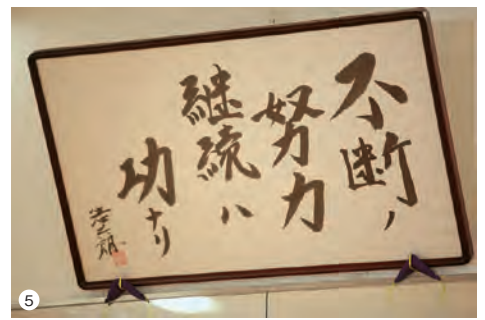 不断ノ
努力
継続ハ
功ナリ
5